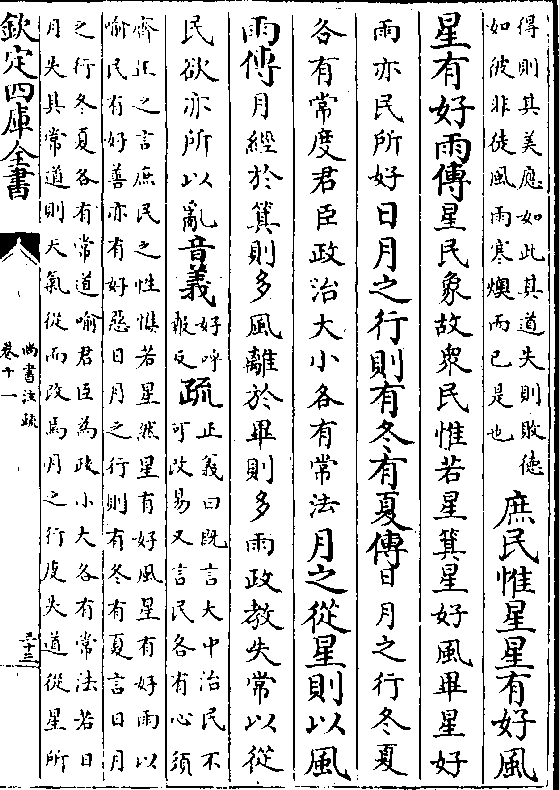 得則其美應如此其道失則敗德
如彼非徒風雨寒燠而已是也
庶民惟星星有好風
星有好雨傳星民象故衆民惟若星箕星好風畢星好
雨亦民所好日月之行則有冬有夏傳日月之行冬夏
各有常度君臣政治大小各有常法月之從星則以風
雨傳月經於箕則多風離於畢則多雨政教失常以從
民欲亦所以亂音義好呼
報反
疏正義曰既言大中治民不
可改易又言民各有心須
齊正之言庶民之性惟若星然星有好風星有好雨以
喻民有好善亦有好惡日月之行則有冬有夏言日月
之行冬夏各有常道喻君臣為政小大各有常法若日
月失其常道則天氣從而改焉月之行度失道從星所
欽定四庫全書
尚書注疏
卷十一
三十三